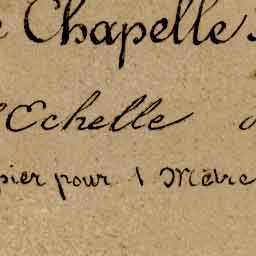 Chapelle
l'Echelle
pier pour 1 Mètre